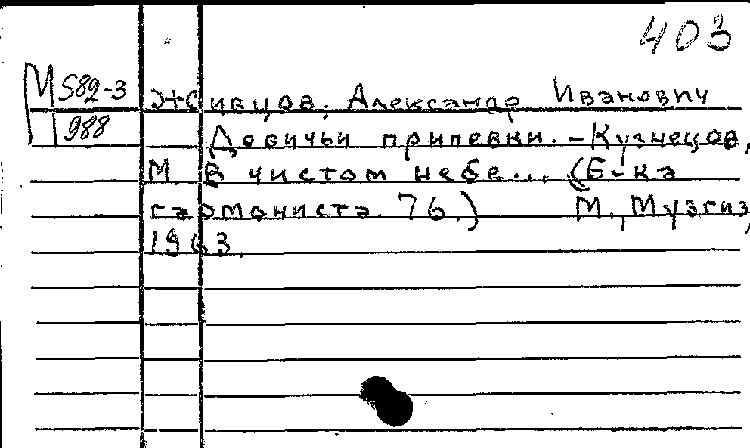 403
М 582-3
988
Живцов, Александр Иванович
Девичьи припевки. - Кузнецов,
М. В чистом небе... (Б-ка
гармониста 76.) М., Музгиз,
1963.